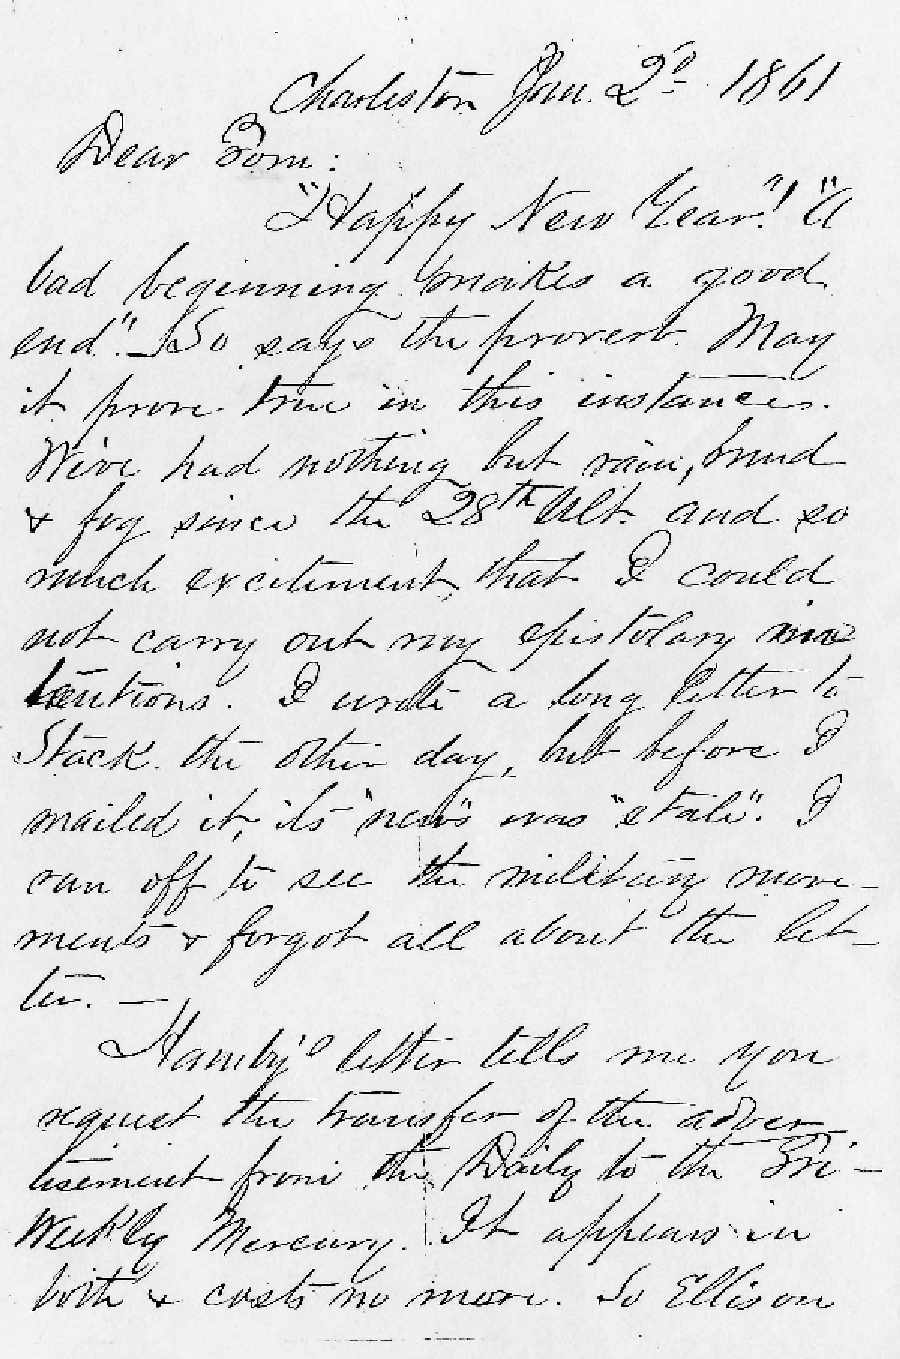 Charleston Jan. 2d 1861
Dear Tom:
"Happy New Year"! "A
bad beginning makes a good
end". – So says the proverb. May
it prove true in this instance.
We've had nothing but rain, mud
& fog since the 28th Ult. and so
much excitement, that I could
not carry out my epistolary in-
tentions. I wrote a long letter to
Stack the other day, but before I
mailed it, its "news" was "stale". I
ran off to see the military move-
ments & forgot all about the let-
ter. –
Hamby's letter tells me you
request the transfer of the adver-
tisement from the Daily to the Tri-
Weekly Mercury. It appears in
both & costs no more. So Ellison